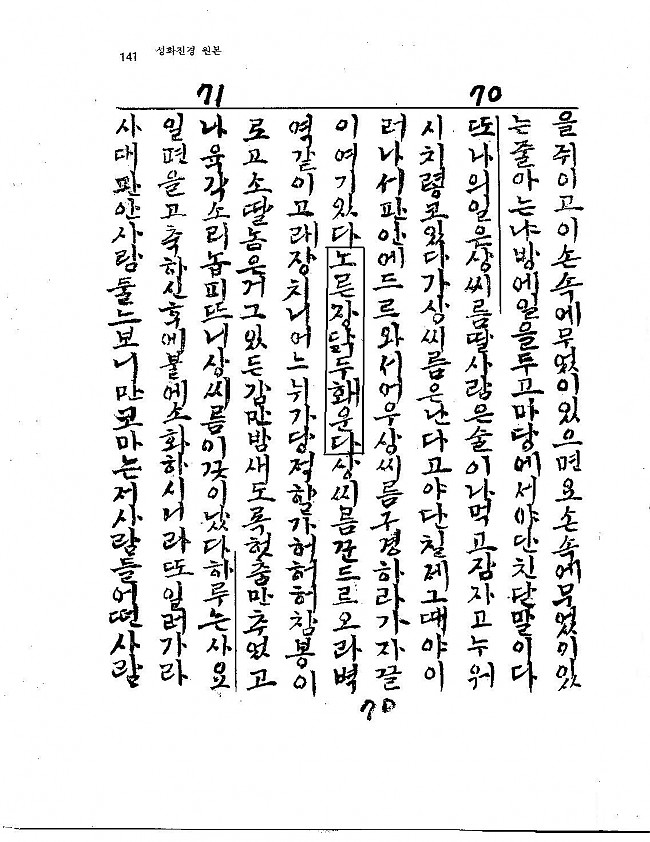 141 성화진경 원본
71 70
을쥐이고이손속에무엇이있으면요손속에무엇이있
는줄아는냐방에일을두고마당에서야단친단말이다
또나의일은상씨름딸사람은술이나먹고잠자고누워
시치령코있다가상씨름은난다고야단칠제그때야이
러나서판안에드르와서어우상씨름구경하라가자끌
이여기있다노른장닭두홰운다상씨름꾼드르오라벽
역같이고래장치니어느뉘가당적할가허허허참봉이
로고소딸놈은거그있든감만밤새도록헛춤만추었고
나육각소리놉피뜨니상씨름이끗이낫다하루는사요
일편을고축하신후에불에소화하시니라또일러가라
사대판안사람둘느보니만코마는저사람들어떤사람
70